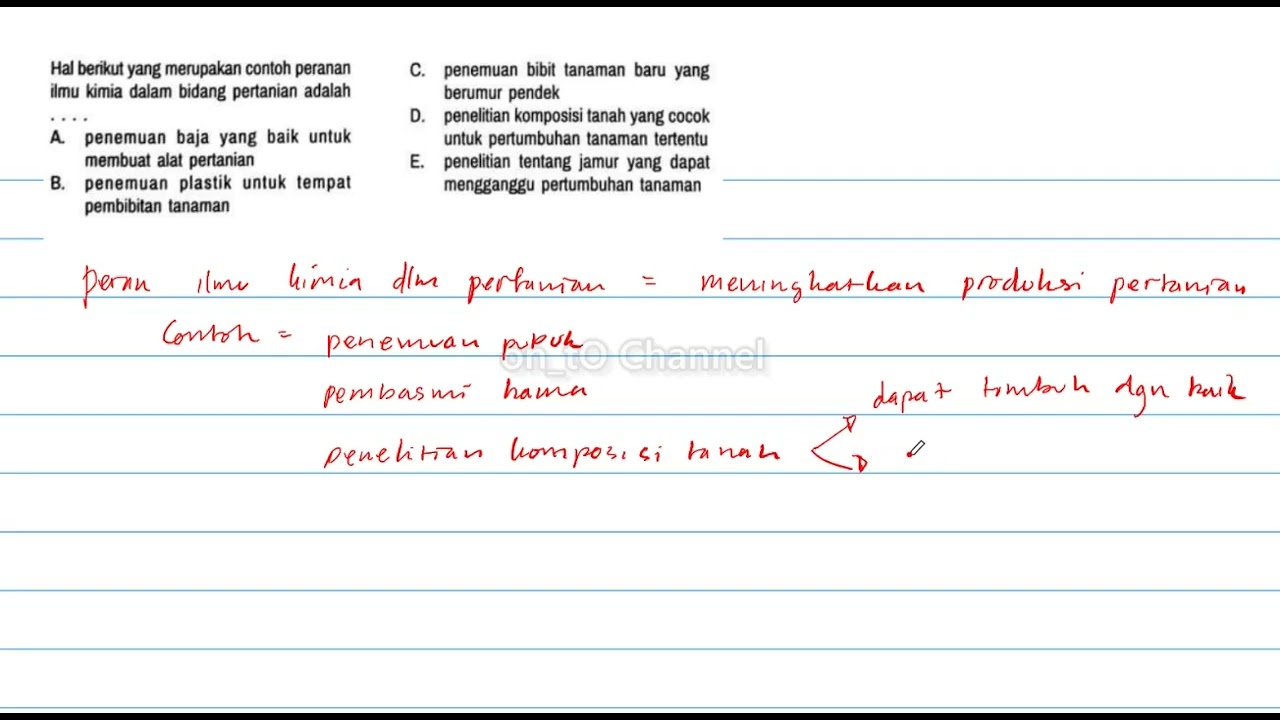 Hal berikut yang merupakan contoh peranan
ilmu kimia dalam bidang pertanian adalah
. . . .
A. penemuan baja yang baik untuk
membuat alat pertanian
B. penemuan plastik untuk tempat
pembibitan tanaman
C. penemuan bibit tanaman baru yang
berumur pendek
D. penelitian komposisi tanah yang cocok
untuk pertumbuhan tanaman tertentu
E. penelitian tentang jamur yang dapat
mengganggu pertumbuhan tanaman
peran ilmu kimia dlm pertanian = meningkatkan produksi pertanian
Contoh = penemuan pupuk
on_tO Channel
pembasmi hama
dapat tumbuh dgn baik
penelitian komposisi tanah